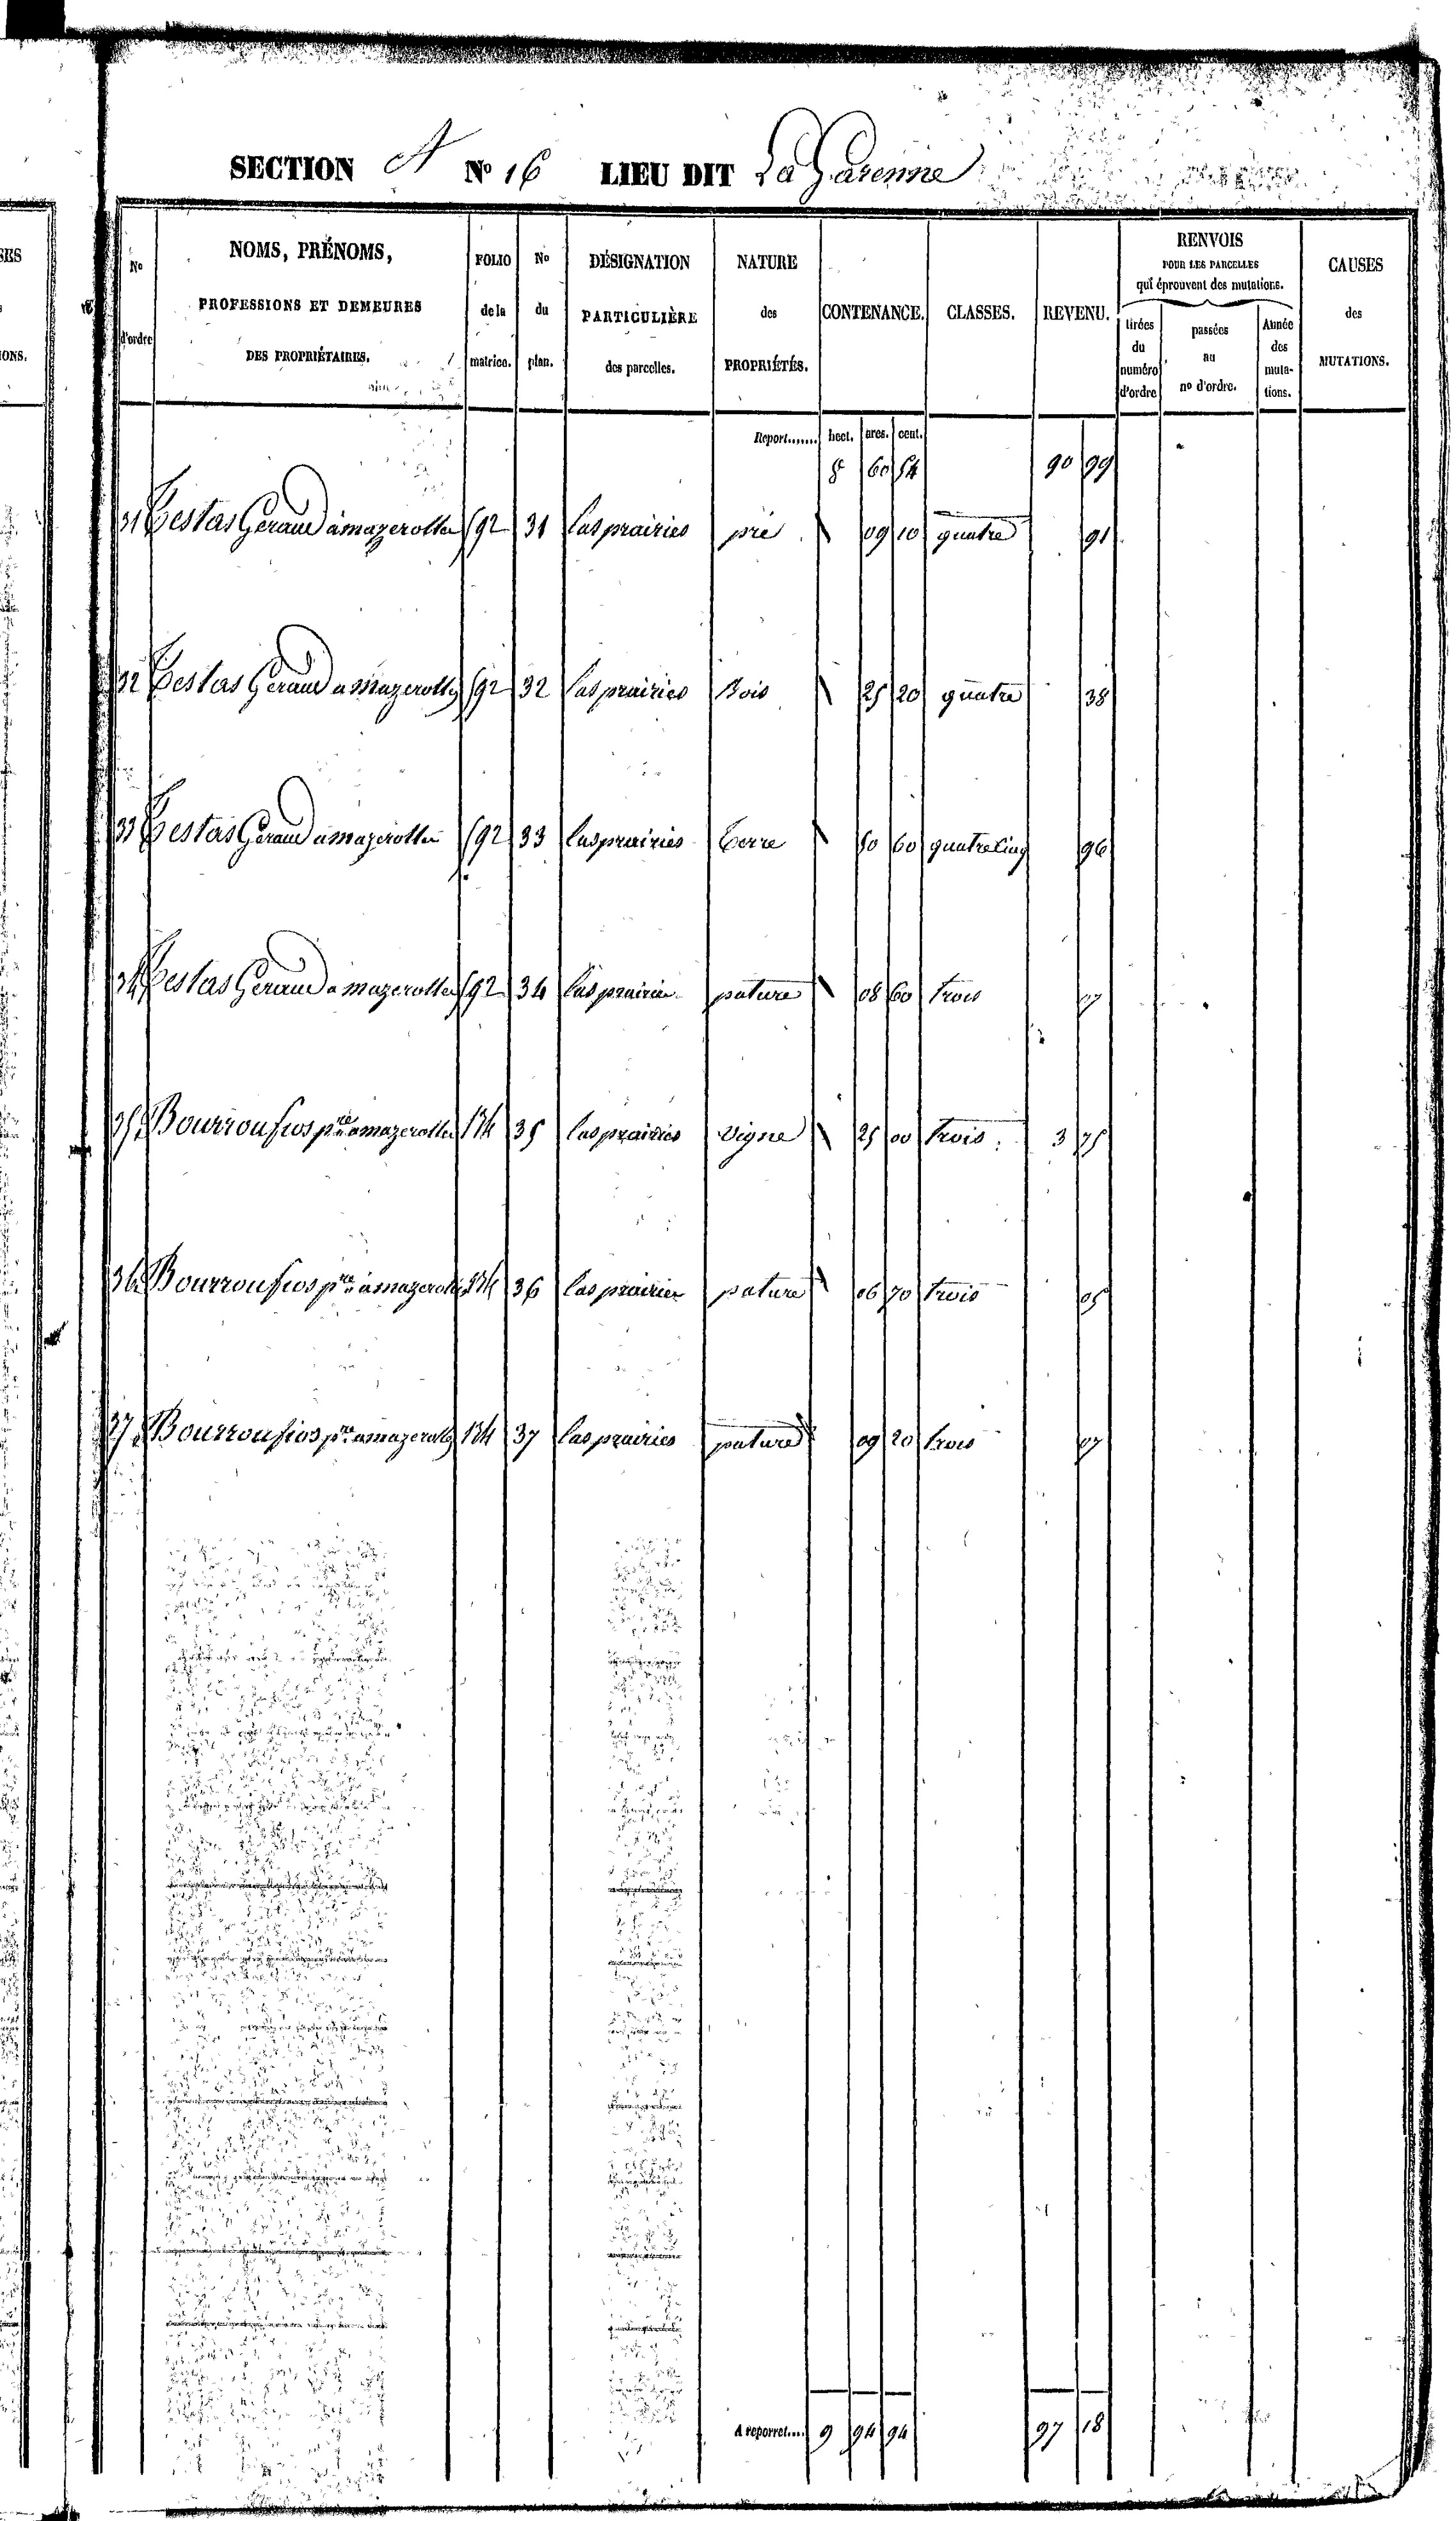 SES
IONS.
SECTION A No 16 LIEU DIT La Garenne
No d'ordre
NOMS, PRÉNOMS, PROFESSIONS ET DEMEURES DES PROPRIÉTAIRES.
FOLIO de la matrice.
No du plan.
DÉSIGNATION PARTICULIÈRE des parcelles.
NATURE des PROPRIÉTÉS.
CONTENANCE.
CLASSES.
REVENU.
RENVOIS POUR LES PARCELLES qui éprouvent des mutations.
tirées du numéro d'ordre
passées au no d'ordre.
Année des muta- tions.
CAUSES des MUTATIONS.
Report....... hect. ares. cent.
8 60 54 90 99
31 Testas Geraud à mazerolles 592 31 las prairies pré \ 09 10 quatre 91
32 Testas Geraud a mazerolles 592 32 las prairies Bois \ 25 20 quatre 38
33 Testas Geraud a mazerolles 592 33 las prairies terre \ 50 60 quatre cinq 96
34 Testas Geraud a mazerolles 592 34 las prairies pature \ 08 60 trois 07
35 pre a mazerolles 35 las prairies vigne \ 25 00 trois 3 75
36 pre à mazerolles 36 las prairies pature \ 06 70 trois 05
37 pre a mazerolles 37 las prairies pature \ 09 20 trois 07
A reporter.... 9 94 94 97 18